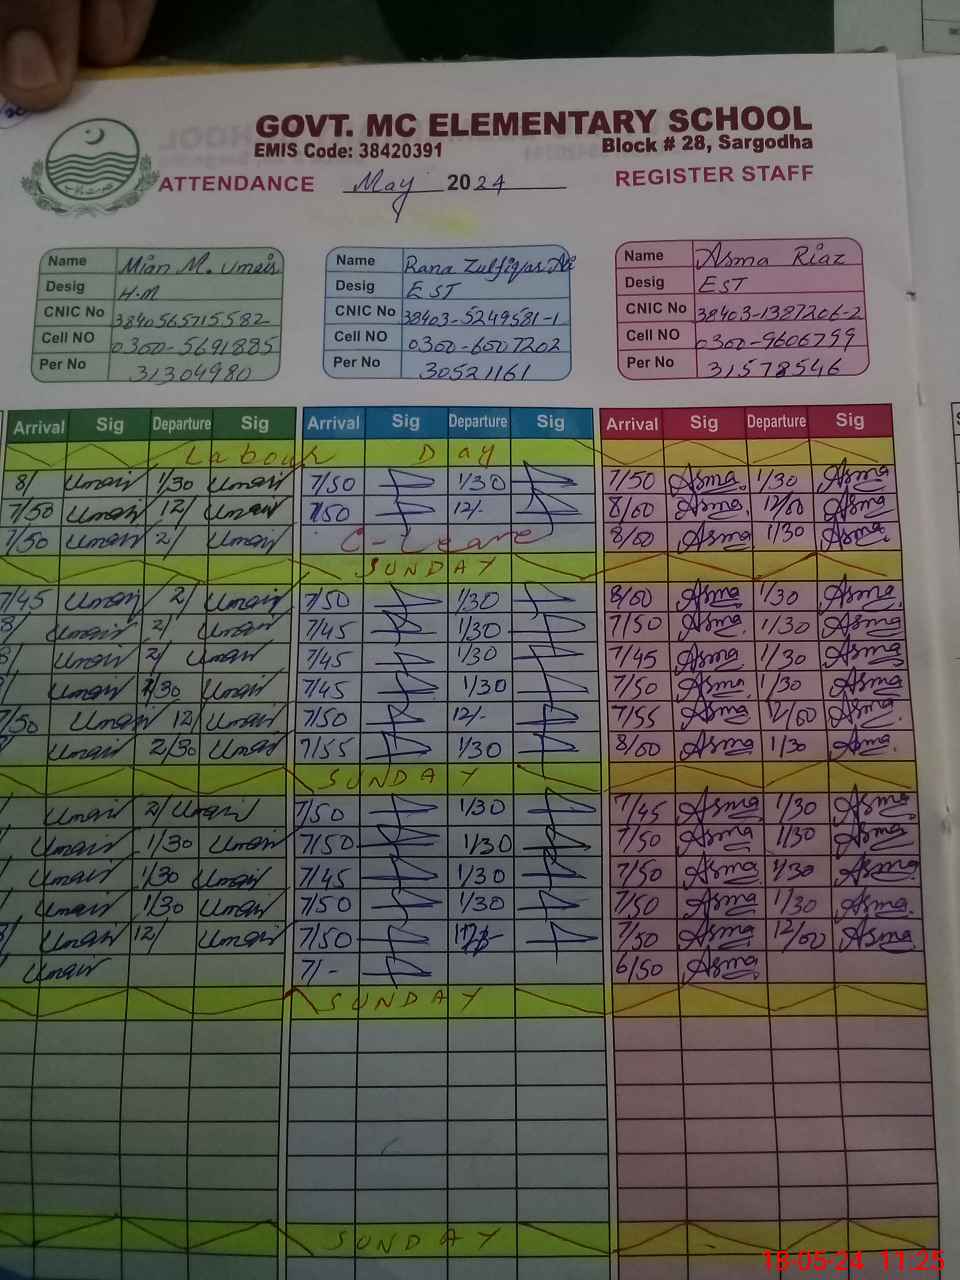 GOVT. MC ELEMENTARY SCHOOL
EMIS Code: 38420391 Block # 28, Sargodha
ATTENDANCE May 2024 REGISTER STAFF
Name Mian M. Umair Name Rana Zulfiqar Ali Name Asma Riaz
Desig H.M Desig EST Desig EST
CNIC No 3840565715582 CNIC No 38403-5249581-1 CNIC No 38403-1387206-2
Cell NO 0300-5691885 Cell NO 0300-6007202 Cell NO 0300-9606799
Per No 31304980 Per No 30521161 Per No 31578546
Arrival Sig Departure Sig Arrival Sig Departure Sig Arrival Sig Departure Sig
Labour Day
8/ Umair 1/30 Umair 7/50 1/30 7/50 Asma 1/30 Asma
7/50 Umair 12/ Umair 7/50 12/- 8/00 Asma 12/00 Asma
7/50 Umair 2/ Umair C-Leave 8/00 Asma 1/30 Asma
SUNDAY
7/45 Umair 2/ Umair 7/50 1/30 8/00 Asma 1/30 Asma
8/ Umair 2/ Umair 7/45 1/30 7/50 Asma 1/30 Asma
Umair 2/ Umair 7/45 1/30 7/45 Asma 1/30 Asma
Umair 1/30 Umair 7/45 1/30 7/50 Asma 1/30 Asma
7/50 Umair 12/ Umair 7/50 12/- 7/55 Asma 12/00 Asma
Umair 2/30 Umair 7/55 1/30 8/00 Asma 1/30 Asma
SUNDAY
Umair 2/ Umair 7/50 1/30 7/45 Asma 1/30 Asma
Umair 1/30 Umair 7/50 1/30 7/50 Asma 1/30 Asma
Umair 1/30 Umair 7/45 1/30 7/50 Asma 1/30 Asma
Umair 1/30 Umair 7/50 1/30 7/50 Asma 1/30 Asma
Umair 12/ Umair 7/50 7/50 Asma 12/00 Asma
Umair 7/- 6/50 Asma
SUNDAY
SUNDAY
18-05-24 11:25